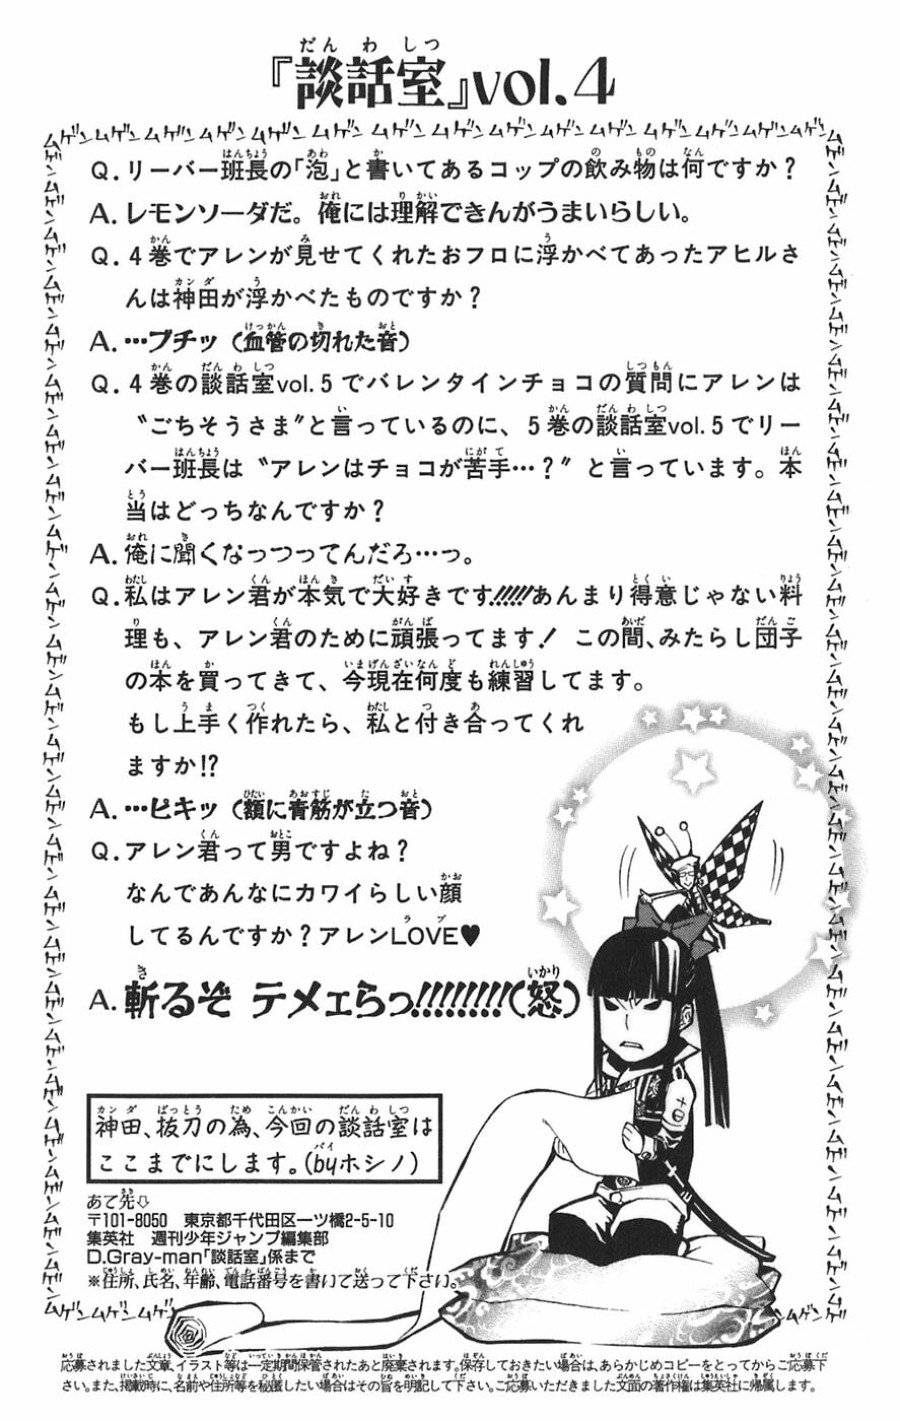 『談話室』vol.4
Q. リーバー班長の「泡」と書いてあるコップの飲み物は何ですか？
A. レモンソーダだ。俺には理解できんがうまいらしい。
Q. 4巻でアレンが見せてくれたおフロに浮かべてあったアヒルさ
んは神田が浮かべたものですか？
A. …ブチッ（血管の切れた音）
Q. 4巻の談話室vol.5でバレンタインチョコの質問にアレンは
〝ごちそうさま〟と言っているのに、5巻の談話室vol.5でリー
バー班長は〝アレンはチョコが苦手…？〟と言っています。本
当はどっちなんですか？
A. 俺に聞くなっつってんだろ…っ。
Q. 私はアレン君が本気で大好きです!!!!!!あんまり得意じゃない料
理も、アレン君のために頑張ってます！ この間、みたらし団子
の本を買ってきて、今現在何度も練習してます。
もし上手く作れたら、私と付き合ってくれ
ますか!?
A. …ピキッ（額に青筋が立つ音）
Q. アレン君って男ですよね？
なんであんなにカワイらしい顔
してるんですか？アレンLOVE♥
A. 斬るぞ テメェらっ!!!!!!!!!（怒）
神田、抜刀の為、今回の談話室は
ここまでにします。(byホシノ)
あて先⇩
〒101-8050 東京都千代田区一ツ橋2-5-10
集英社 週刊少年ジャンプ編集部
D.Gray-man「談話室」係まで
※住所、氏名、年齢、電話番号を書いて送って下さい。
応募されました文章、イラスト等は一定期間保管されたあと廃棄されます。保存しておきたい場合は、あらかじめコピーをとってからご応募下
さい。また、掲載時に、名前や住所等を秘匿したい場合はその旨を明記して下さい。ご応募いただきました文面の著作権は集英社に帰属します。